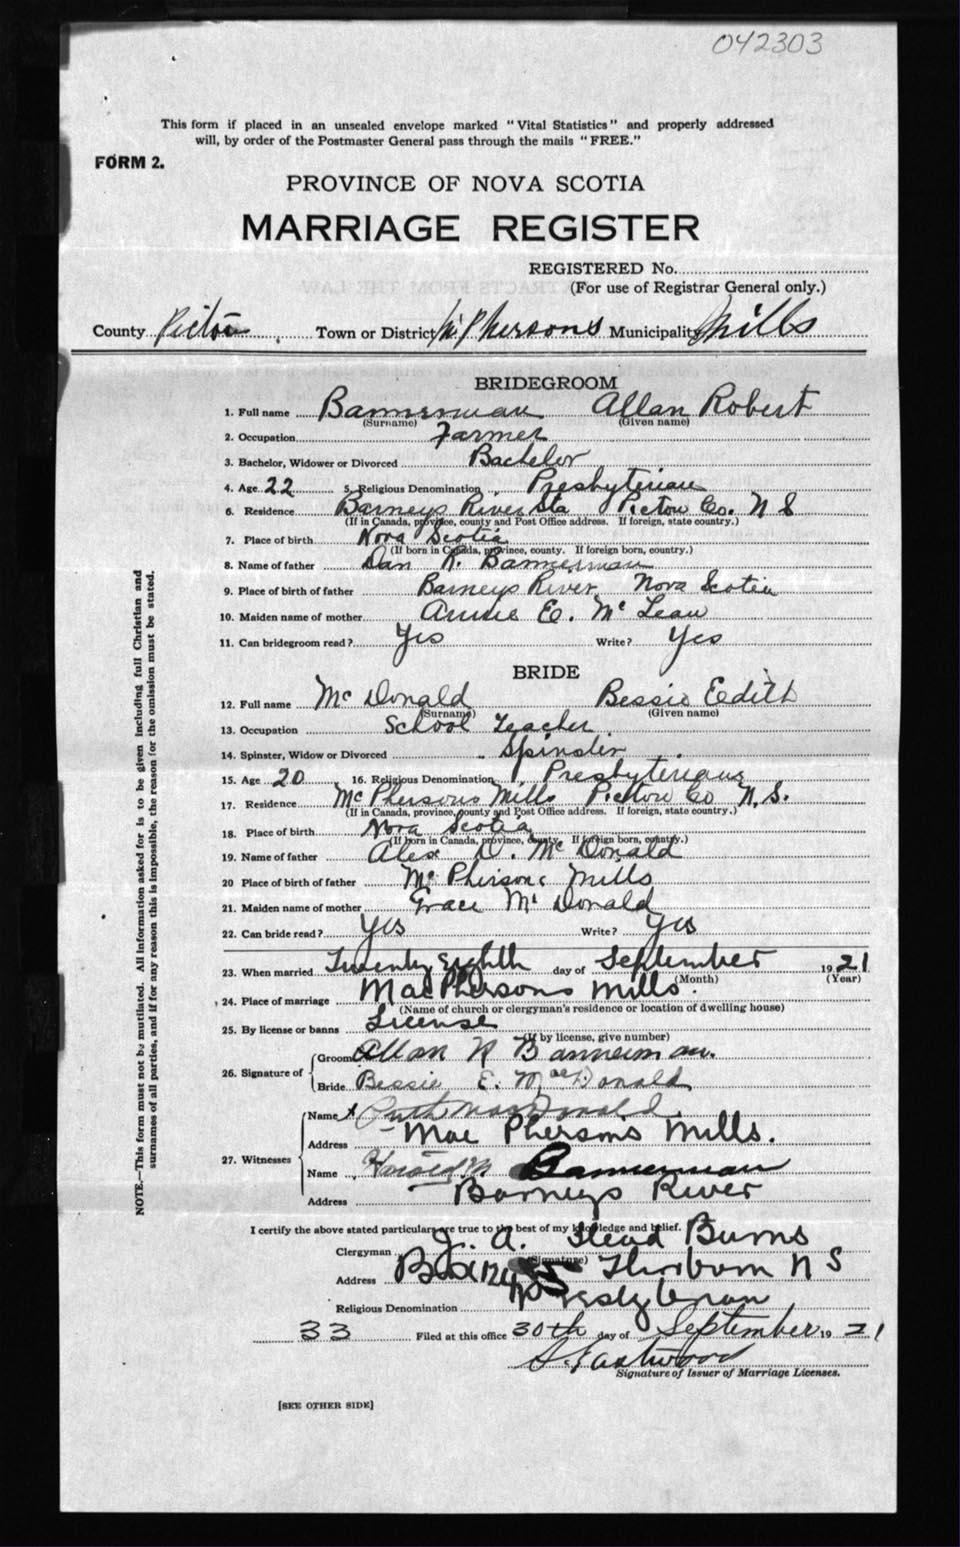 042303
This form if placed in an unsealed envelope marked "Vital Statistics" and properly addressed
will, by order of the Postmaster General pass through the mails "FREE."
FORM 2.
PROVINCE OF NOVA SCOTIA
MARRIAGE REGISTER
REGISTERED No.
(For use of Registrar General only.)
County Pictou Town or District McPhersons Municipality Mills
BRIDEGROOM
1. Full name Bannerman Allan Robert
(Surname) (Given name)
2. Occupation Farmer
3. Bachelor, Widower or Divorced Bachelor
4. Age 22 5. Religious Denomination Presbyterian
6. Residence Barneys River Sta Pictou Co. N S
(If in Canada, province, county and Post Office address. If foreign, state country.)
7. Place of birth Nova Scotia
(If born in Canada, province, county. If foreign born, country.)
8. Name of father Dan R. Bannerman
9. Place of birth of father Barneys River Nova Scotia
10. Maiden name of mother Annie E. McLean
11. Can bridegroom read? Yes Write? Yes
BRIDE
12. Full name McDonald Bessie Edith
(Surname) (Given name)
13. Occupation School Teacher
14. Spinster, Widow or Divorced Spinster
15. Age 20 16. Religious Denomination Presbyterian
17. Residence McPhersons Mills Pictou Co N.S.
(If in Canada, province, county and Post Office address. If foreign, state country.)
18. Place of birth Nova Scotia
(If born in Canada, province, county. If foreign born, country.)
19. Name of father Alex D. McDonald
20 Place of birth of father McPhersons Mills
21. Maiden name of mother Grace McDonald
22. Can bride read? Yes Write? Yes
23. When married Twenty Eighth day of September 1921
(Month) (Year)
24. Place of marriage MacPhersons Mills.
(Name of church or clergyman's residence or location of dwelling house)
25. By license or banns License
(If by license, give number)
26. Signature of
Groom Allan R Bannerman.
Bride Bessie E. MacDonald
27. Witnesses
Name x Ruth MacDonald
Address MacPhersons Mills.
Name Harold M Bannerman
Address Barneys River
I certify the above stated particulars are true to the best of my knowledge and belief.
Clergyman J. A. Burns
(Signature)
Address Thorburn N S
Religious Denomination Presbyterian
33 Filed at this office 30th day of September 1921
Eastwood
Signature of Issuer of Marriage Licenses.
[SEE OTHER SIDE]
NOTE.—This form must not be mutilated. All information asked for is to be given including full Christian and
surnames of all parties, and if for any reason this is impossible, the reason for the omission must be stated.